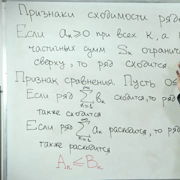 Признаки сходимости ряда
Если aₖ≥0 при всех k, а
частичных сумм Sₙ огранич
сверху, то ряд сходится.
Признак сравнения. Пусть 0≤
Если ряд ∑ bₖ сходится, то ряд
также сходится
Если ряд ∑ aₖ расходится, то ряд
также расходится
Aₙ≤Bₙ